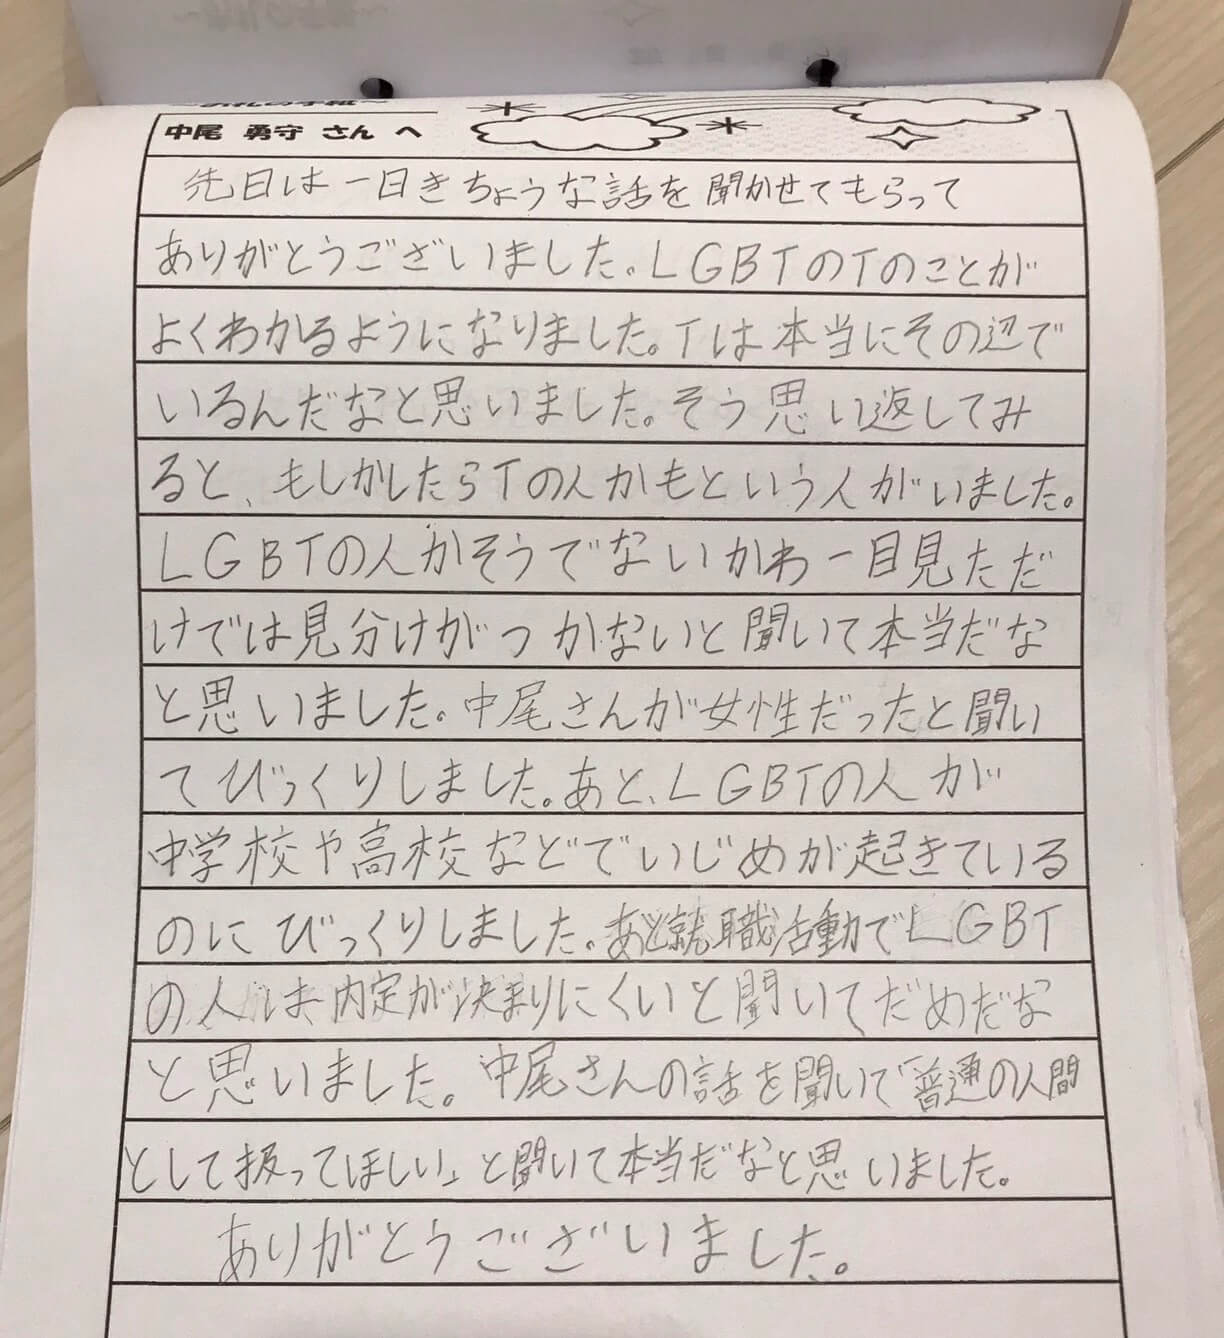 ～お礼の手紙～
中尾 勇守 さん へ
先日は一日きちょうな話を聞かせてもらって
ありがとうございました。LGBTのTのことが
よくわかるようになりました。Tは本当にその辺で
いるんだなと思いました。そう思い返してみ
ると、もしかしたらTの人かもという人がいました。
LGBTの人かそうでないかわ一目見ただ
けでは見分けがつかないと聞いて本当だな
と思いました。中尾さんが女性だったと聞い
てびっくりしました。あと、LGBTの人が
中学校や高校などでいじめが起きている
のにびっくりしました。あと就職活動でLGBT
の人は内定が決まりにくいと聞いてだめだな
と思いました。中尾さんの話を聞いて「普通の人間
として扱ってほしい」と聞いて本当だなと思いました。
ありがとうございました。